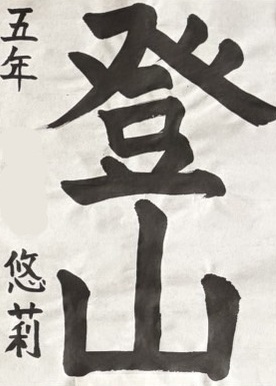 登山
五年
悠莉